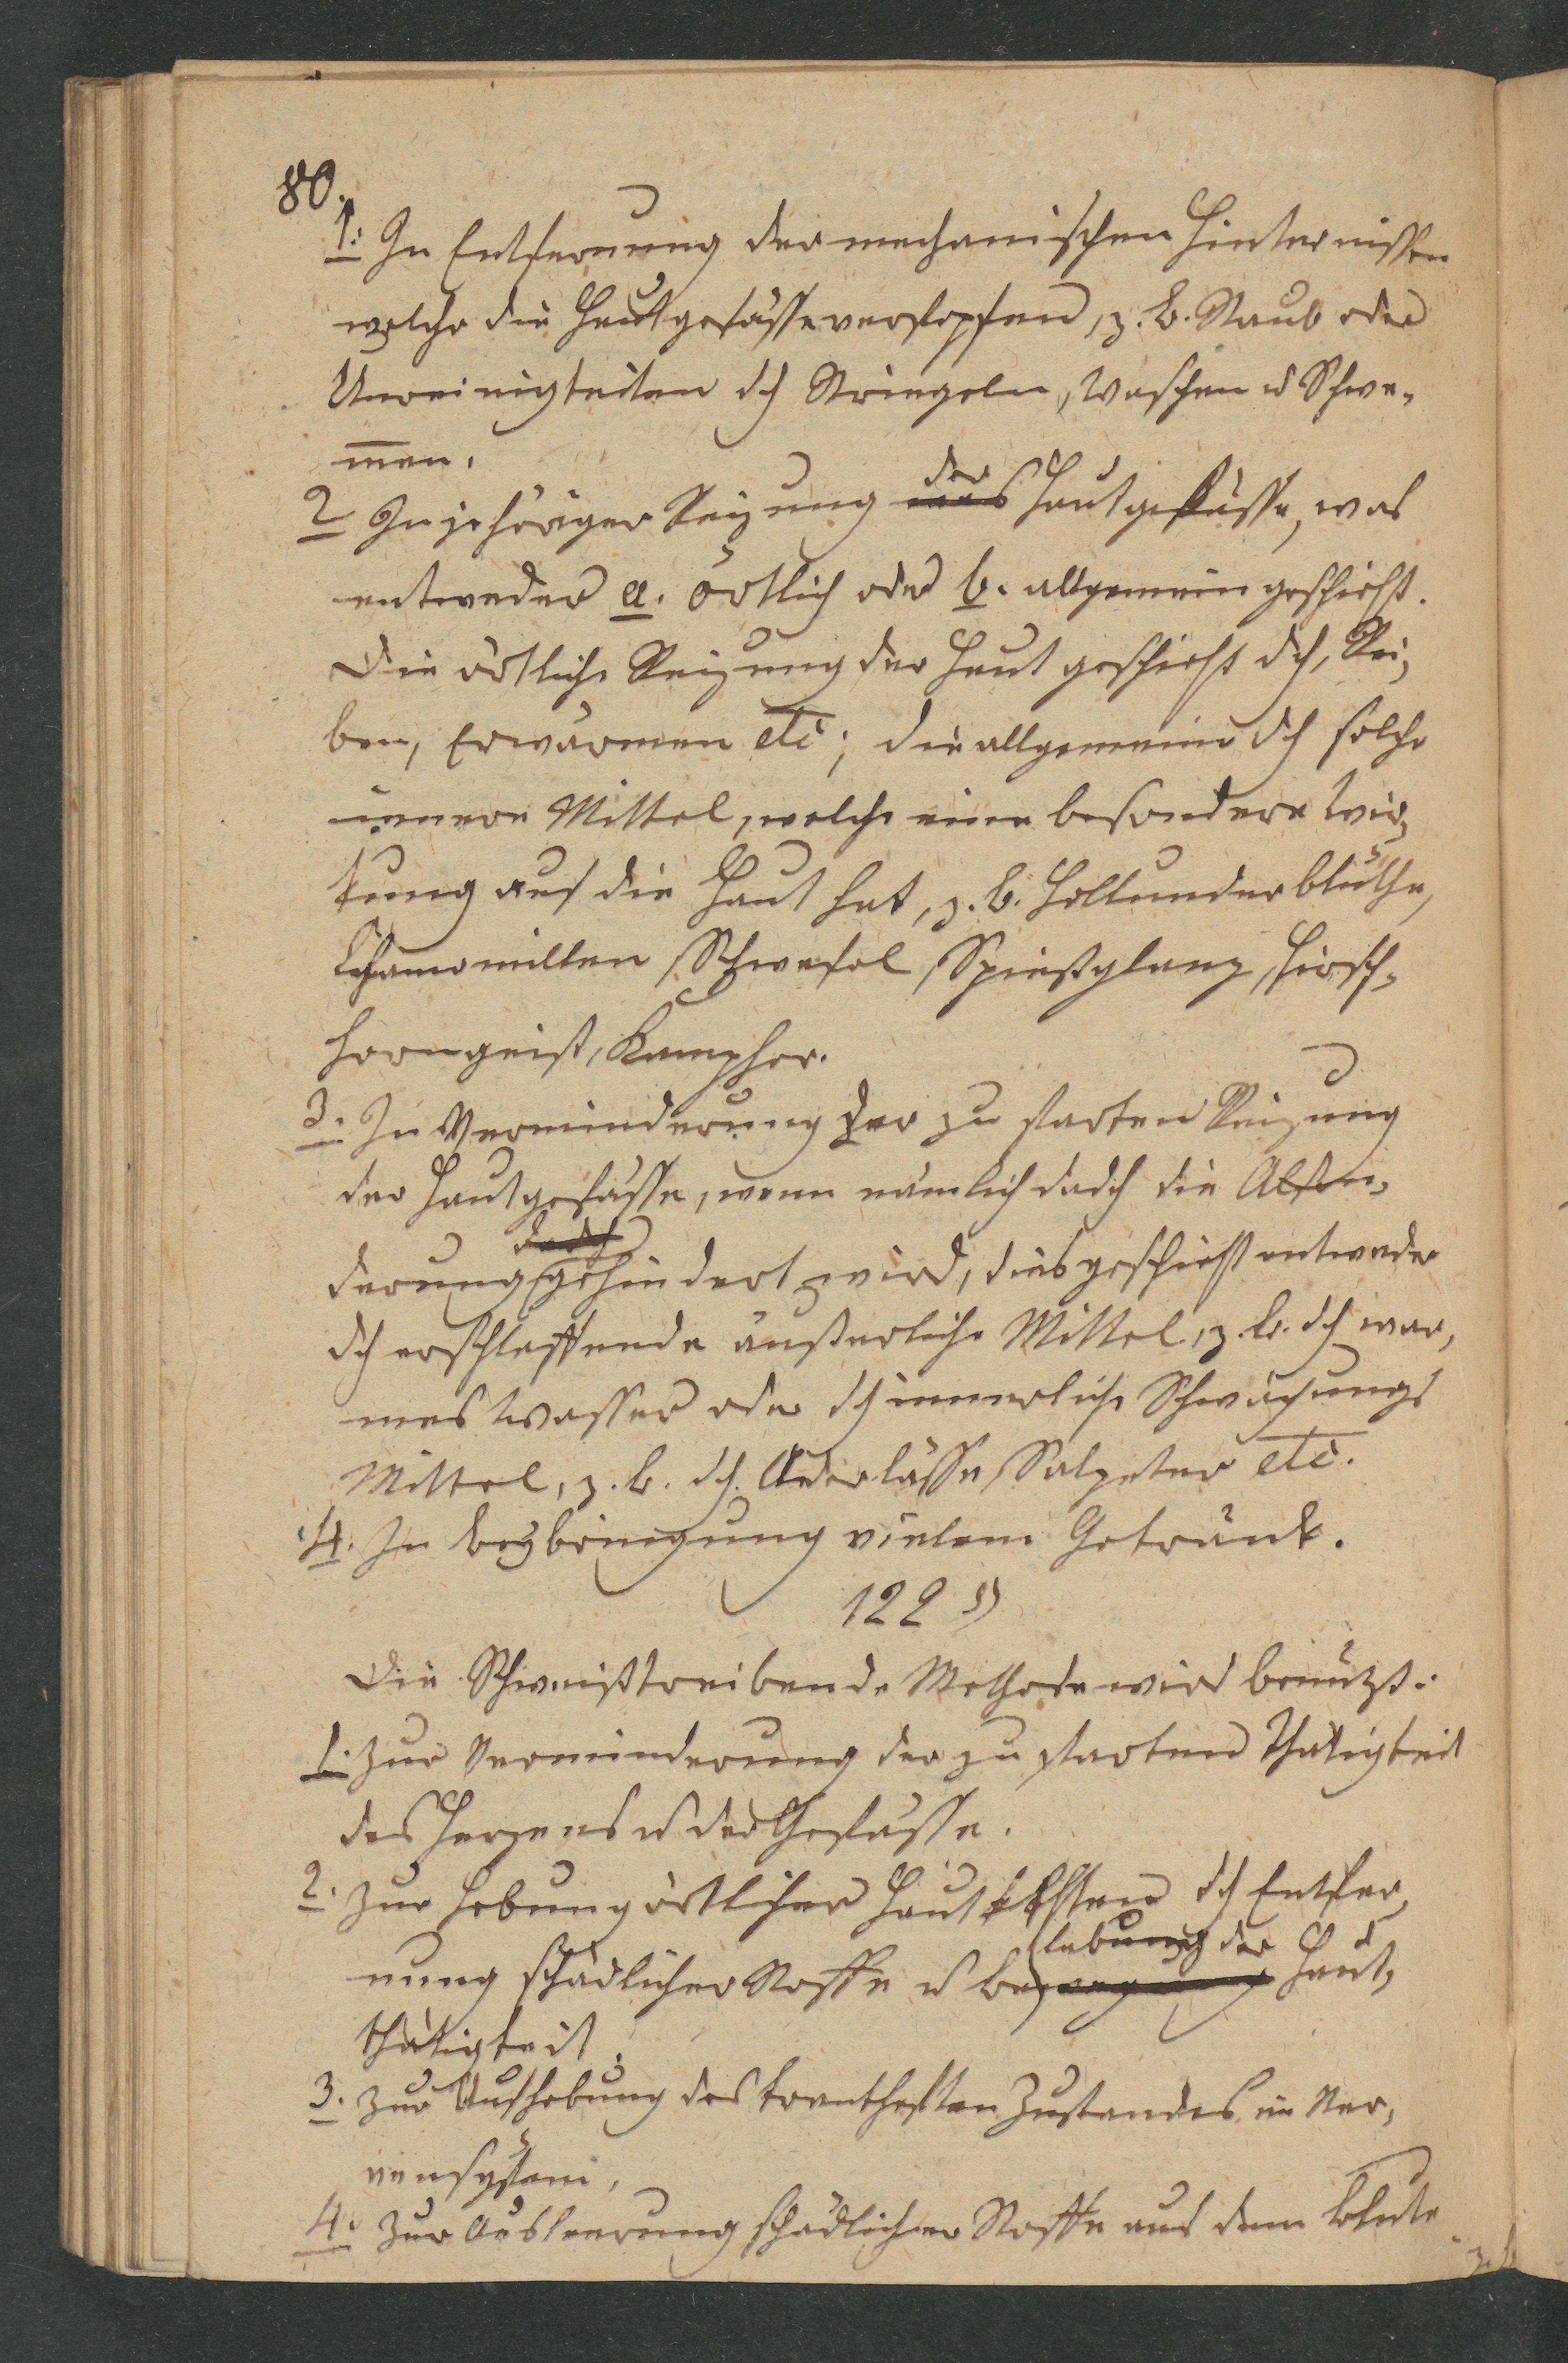 80.
1: In Entfernung der mechanischen Hinternissen
welche die Hautgefässe verstopfen, z. B. Staub oder
Unreinigkeiten dch Striegeln, Waschen u Schwe-
m̅en.
2 In gehöriger Reizung der Hautgefässe, was
entweder a. örtlich oder b. allgemein geschieht.
Die örtliche Reizung der Haut geschieht dch, Rei-
ben, Erwärmen etc; die allgemeine dch solche
innere Mittel, welche eine besondere Wir-
kung auf die Haut hat, z. B. Hollunderblüthe,
Chamomillen, Schwefel, Spießglanz, Hirsch-
horngeist, Kampher.
3. In Verminderung der zu starken Reizung
der Hautgefässe, wenn nämlich dadch die Abson-
derung gehindert wird, dies geschieht entweder
dch erschlaffende äußerliche Mittel, z. B. dch war-
mes Wasser oder dch innerliche Schwächungs
Mittel, z. B. dch. Aderlässe, Salpeter etc.
4. In Beybringung vielem Getränk.
122 §
Die Schweißtreibende Methode wird benützt:
1. Zur Verminderung der zu starken Thätigkeit
des Herzens u der Gefässe.
2. Zur Hebung örtlicher Haut dch Entfer-
nung schädlicher Stoffe u Belebung der Haut-
thätigkeit.
3. Zur Aufhebung des krankhaften Zustandes im Ner-
vensystem.
4. Zur Ausleerung schädlicher Stoffe aus dem Blute
z. B.